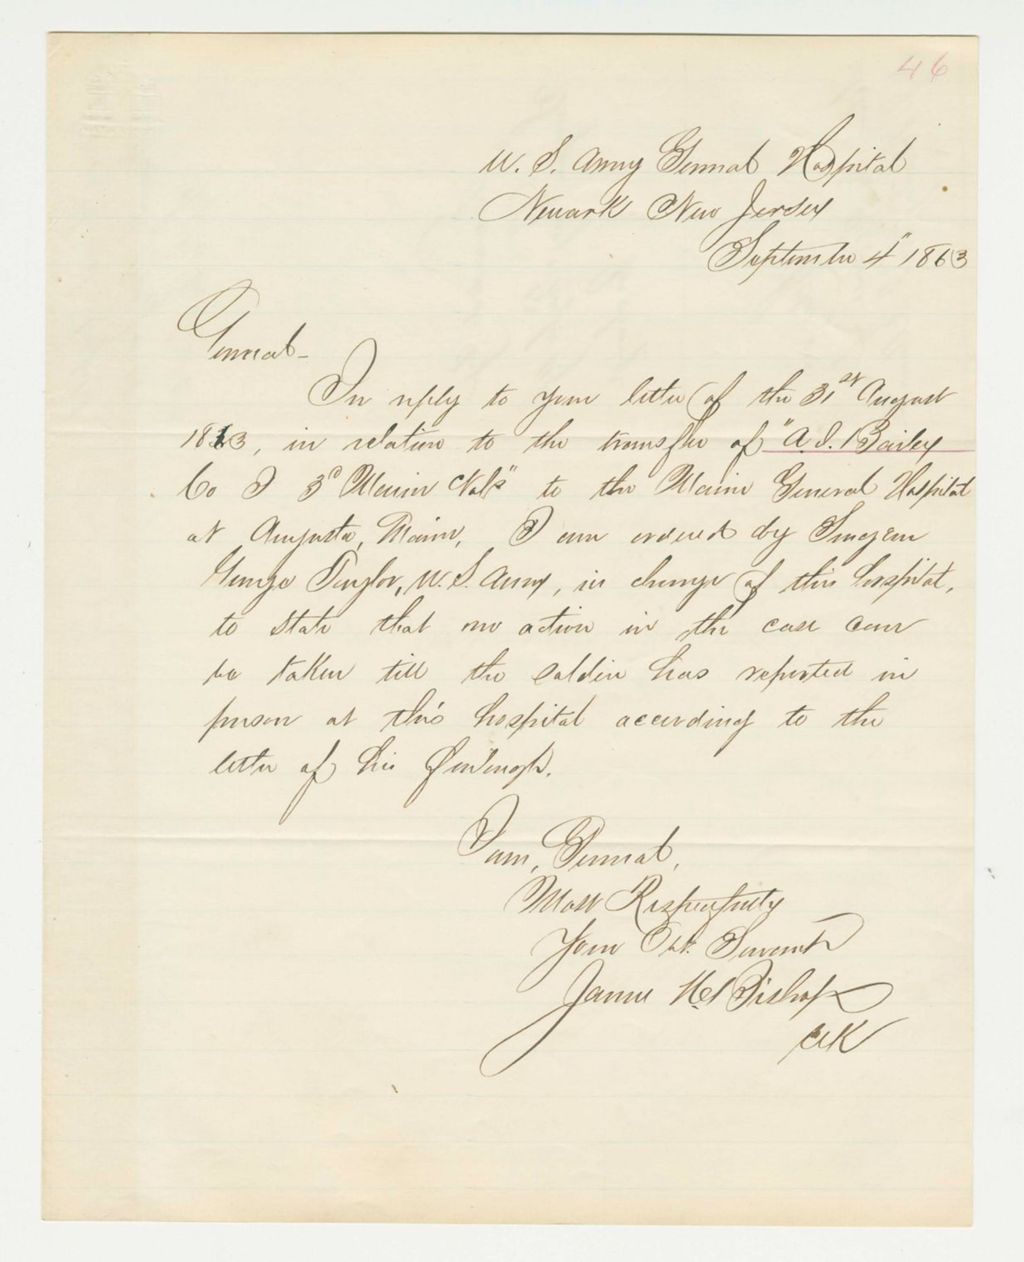 46
U. S. Army General Hospital
Newark New Jersey
September 4" 1863
General -
In reply to your letter of the 31st August
1863, in relation to the transfer of "A. S. Bailey
Co I 3d Maine Vols" to the Maine General Hospital
at Augusta, Maine, I am ordered by Surgeon
George Taylor, U. S. Army, in charge of this hospital,
to state that no action in the case can
be taken till the soldier has reported in
person at this hospital according to the
letter of his furlough.
I am, General,
Most Respectfully
Your Obt. Servant
James Bishop
Clk